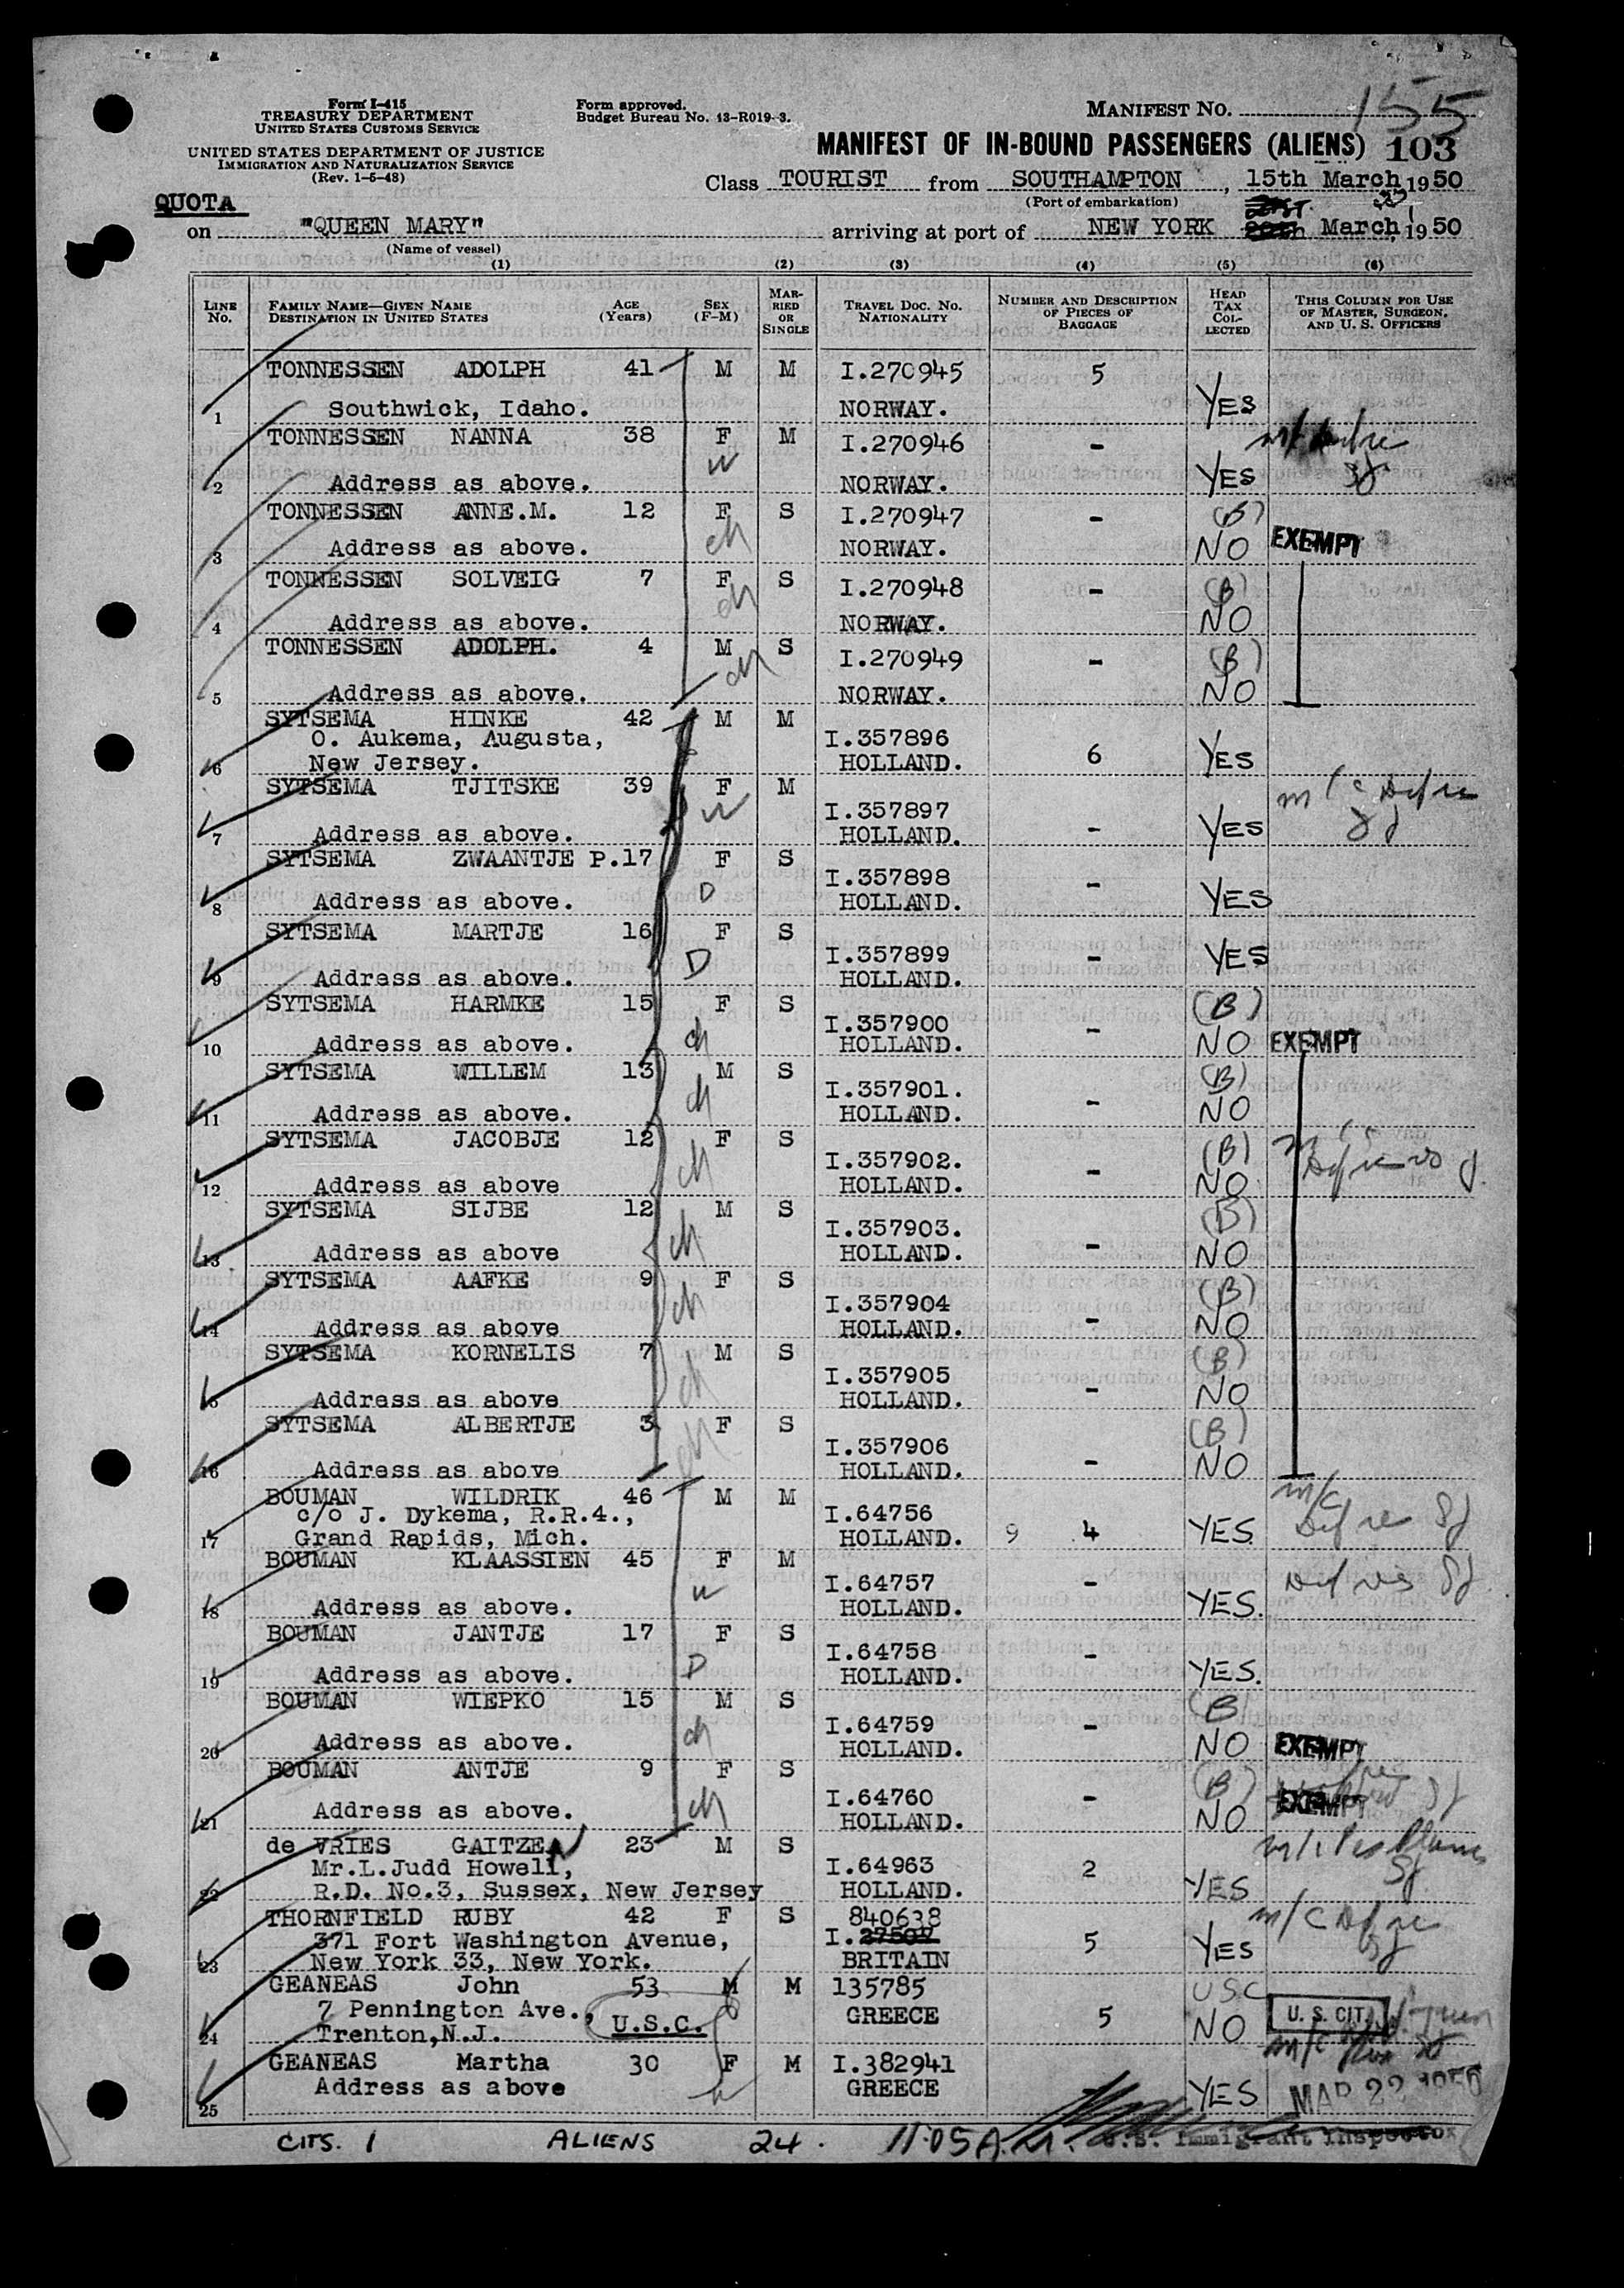 Form I-415
TREASURY DEPARTMENT
UNITED STATES CUSTOMS SERVICE
UNITED STATES DEPARTMENT OF JUSTICE
IMMIGRATION AND NATURALIZATION SERVICE
(Rev. 1-5-48)
Form approved.
Budget Bureau No. 43-R019-3.
MANIFEST NO. 155
MANIFEST OF IN-BOUND PASSENGERS (ALIENS) 103
Class TOURIST from SOUTHAMPTON, 15th March, 1950
(Port of embarkation)
QUOTA
on "QUEEN MARY" arriving at port of NEW YORK March, 1950
(Name of vessel)
(1) (2) (3) (4) (5) (6)
LINE No. FAMILY NAME—GIVEN NAME DESTINATION IN UNITED STATES AGE (Years) SEX (F-M) MARRIED OR SINGLE TRAVEL DOC. NO. NATIONALITY NUMBER AND DESCRIPTION OF PIECES OF BAGGAGE HEAD TAX COLLECTED THIS COLUMN FOR USE OF MASTER, SURGEON, AND U. S. OFFICERS
TONNESSEN ADOLPH 41 M M I.270945 5
1 Southwick, Idaho. NORWAY. YES
TONNESSEN NANNA 38 F M I.270946 -
2 Address as above. W NORWAY. YES
TONNESSEN ANNE.M. 12 F S I.270947 - (B)
3 Address as above. ch NORWAY. NO EXEMPT
TONNESSEN SOLVEIG 7 F S I.270948 - (B)
4 Address as above. ch NORWAY. NO
TONNESSEN ADOLPH. 4 M S I.270949 - (B)
5 Address as above. ch NORWAY. NO
SYTSEMA HINKE 42 M M
O. Aukema, Augusta, I.357896
6 New Jersey. HOLLAND. 6 YES
SYTSEMA TJITSKE 39 F M
W I.357897
7 Address as above. HOLLAND. - YES
SYTSEMA ZWAANTJE P. 17 F S
D I.357898
8 Address as above. HOLLAND. - YES
SYTSEMA MARTJE 16 F S
D I.357899
9 Address as above. HOLLAND. - YES
SYTSEMA HARMKE 15 F S (B)
I.357900
10 Address as above. ch HOLLAND. - NO EXEMPT
SYTSEMA WILLEM 13 M S (B)
I.357901.
11 Address as above. ch HOLLAND. - NO
SYTSEMA JACOBJE 12 F S (B)
I.357902.
12 Address as above ch HOLLAND. - NO
SYTSEMA SIJBE 12 M S (B)
I.357903.
13 Address as above ch HOLLAND. - NO
SYTSEMA AAFKE 9 F S (B)
I.357904
14 Address as above ch HOLLAND. - NO
SYTSEMA KORNELIS 7 M S (B)
I.357905
15 Address as above ch HOLLAND. - NO
SYTSEMA ALBERTJE 3 F S (B)
I.357906
16 Address as above ch HOLLAND. - NO
BOUMAN WILDRIK 46 M M
c/o J. Dykema, R.R.4., I.64756
17 Grand Rapids, Mich. HOLLAND. 9 4 YES.
BOUMAN KLAASSIEN 45 F M
W I.64757
18 Address as above. HOLLAND. - YES.
BOUMAN JANTJE 17 F S
D I.64758
19 Address as above. HOLLAND. - YES.
BOUMAN WIEPKO 15 M S (B)
I.64759
20 Address as above. ch HOLLAND. - NO EXEMPT
BOUMAN ANTJE 9 F S (B)
I.64760
21 Address as above. ch HOLLAND. - NO EXEMPT
de VRIES GAITZEN 23 M S
Mr.L.Judd Howell, I.64963
22 R.D. No.3, Sussex, New Jersey HOLLAND. 2 YES
THORNFIELD RUBY 42 F S 840638
371 Fort Washington Avenue, I.
23 New York 33, New York. BRITAIN 5 YES
GEANEAS John 53 M M 135785 USC
7 Pennington Ave., U.S.C. GREECE 5 NO U. S. CIT.
24 Trenton,N.J.
GEANEAS Martha 30 F M I.382941
Address as above W GREECE - YES MAR 22 1950
25
CITS. 1 ALIENS 24. 11.05 A.M. U.S. Immigrant Inspector